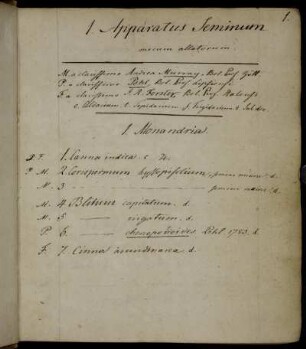 1.
1. Apparatus Seminum
mecum allatorum
M a clarissimo Andrea Murray, Bot. Prof. Gött.
P. a clarissimo Pohl, Bot. Prof. Lipsiensi
F a clarissimo F. R. Forster, Bot. Prof. Halensi
c. t. Lepidarium f. frigidarium d.
1. Monandria.
F. 1. Canna indica. c
P M. 2. Corispermum hyssopifolium,
M. 3
M. 4 Blitum capitatum. d.
M. 5 —— virgatum. d.
P. 6. —— chenopodioides Lihl 1783. d.
F. 7. Cinna arundinacea. d.